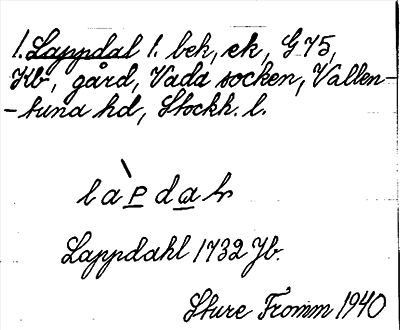 1. Lappdal 1. bek, ek, G 75,
Kb, gård, Vada socken, Vallen-
-tuna hd, Stockh. l.
làpdaln
Lappdahl 1732 Jb.
Sture Fromm 1940